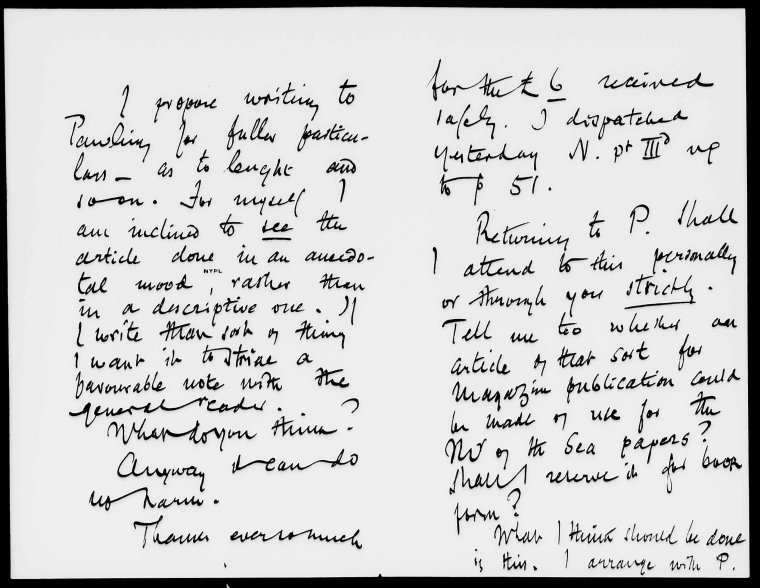 I propose writing to
Pawling for fuller particu-
lars — as to lenght and
so on. For myself I
am inclined to see the
article done in an anecdo-
tal mood, rather than
NYPL
in a descriptive one. If
I write than sort of thing
I want it to strike a
favourable note with the
general reader.
What do you think?
Anyway it can do
no harm.
Thanks ever so much
for the £ 6 received
safely. I dispatched
yesterday N. pt IIId up
to p 51.
Returning to P. Shall
I attend to this personally
or through you strictly.
Tell me too whether an
article of that sort for
Magazine publication could
be made of use for the
Mr of the Sea papers?
Shall I reserve it for book
form?
What I think should be done
is this. I arrange with P.